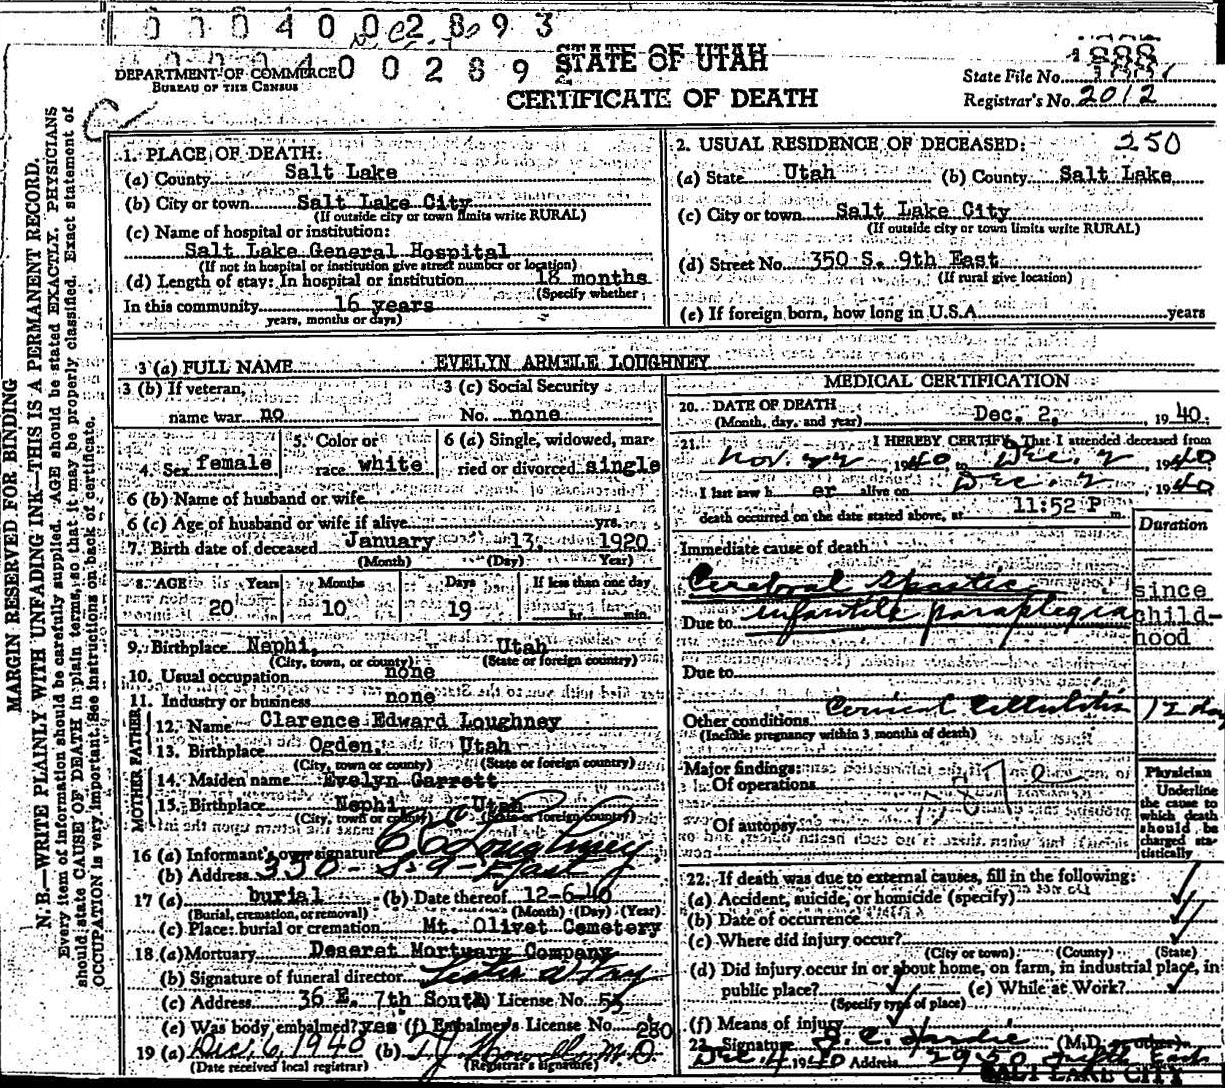 0 0 0 4 0 0 2 8 9 3
DEPARTMENT OF COMMERCE
BUREAU OF THE CENSUS
0 0 2 8 9
STATE OF UTAH
CERTIFICATE OF DEATH
1888
State File No.
Registrar's No. 2012
MARGIN RESERVED FOR BINDING
N. B.—WRITE PLAINLY WITH UNFADING INK—THIS IS A PERMANENT RECORD.
Every item of information should be carefully supplied. AGE should be stated EXACTLY. PHYSICIANS
should state CAUSE OF DEATH in plain terms, so that it may be properly classified. Exact statement of
OCCUPATION is very important. See instructions on back of certificate.
1. PLACE OF DEATH:
(a) County Salt Lake
(b) City or town Salt Lake City
(If outside city or town limits write RURAL)
(c) Name of hospital or institution:
Salt Lake General Hospital
(If not in hospital or institution give street number or location)
(d) Length of stay: In hospital or institution 18 months
(Specify whether
In this community 16 years
years, months or days)
2. USUAL RESIDENCE OF DECEASED: 250
(a) State Utah (b) County Salt Lake
(c) City or town Salt Lake City
(If outside city or town limits write RURAL)
(d) Street No. 350 S. 9th East
(If rural give location)
(e) If foreign born, how long in U.S.A. years
3 (a) FULL NAME EVELYN ARMELE LOUGHNEY
3 (b) If veteran,
name war no
3 (c) Social Security
No. none
4. Sex female
5. Color or
race white
6 (a) Single, widowed, mar-
ried or divorced single
6 (b) Name of husband or wife
6 (c) Age of husband or wife if alive yrs.
7. Birth date of deceased January 13, 1920
(Month) (Day) (Year)
8. AGE Years Months Days If less than one day
20 10 19 hr. min.
9. Birthplace Nephi, Utah
(City, town, or county) (State or foreign country)
10. Usual occupation none
11. Industry or business none
FATHER
12. Name Clarence Edward Loughney
13. Birthplace Ogden, Utah
(City, town or county) (State or foreign country)
MOTHER
14. Maiden name Evelyn Garrett
15. Birthplace Nephi, Utah
(City, town or county) (State or foreign country)
16 (a) Informant's own signature C E Loughney
(b) Address 350 - S. 9 - East
17 (a) burial (b) Date thereof 12-6-40
(Burial, cremation, or removal) (Month) (Day) (Year)
(c) Place: burial or cremation Mt. Olivet Cemetery
18 (a) Mortuary Deseret Mortuary Company
(b) Signature of funeral director
(c) Address 36 E. 7th South License No. 53
(e) Was body embalmed? yes (f) Embalmer's License No. 280
19 (a) Dec. 6, 1940 (b) T. J. Howells M.D.
(Date received local registrar) (Registrar's signature)
MEDICAL CERTIFICATION
20. DATE OF DEATH
(Month, day, and year) Dec. 2, 1940.
21. I HEREBY CERTIFY, That I attended deceased from
Nov. 22, 1940, to Dec. 2, 1940
I last saw her alive on Dec. 2, 1940
death occurred on the date stated above, at 11:52 P m.
Duration
Immediate cause of death
Cerebral Spastic
Due to infantile paraplegia
since
child-
hood
Due to
Other conditions Cervical Cellulitis 12 day
(Include pregnancy within 3 months of death)
Major findings:
Of operations
Of autopsy
Physician
Underline
the cause to
which death
should be
charged sta-
tistically
22. If death was due to external causes, fill in the following:
(a) Accident, suicide, or homicide (specify)
(b) Date of occurrence
(c) Where did injury occur?
(City or town) (County) (State)
(d) Did injury occur in or about home, on farm, in industrial place, in
public place? (e) While at Work?
(Specify type of place)
(f) Means of injury
23. Signature (M.D. or other)
Dec. 4, 1940 Address
SALT LAKE CITY